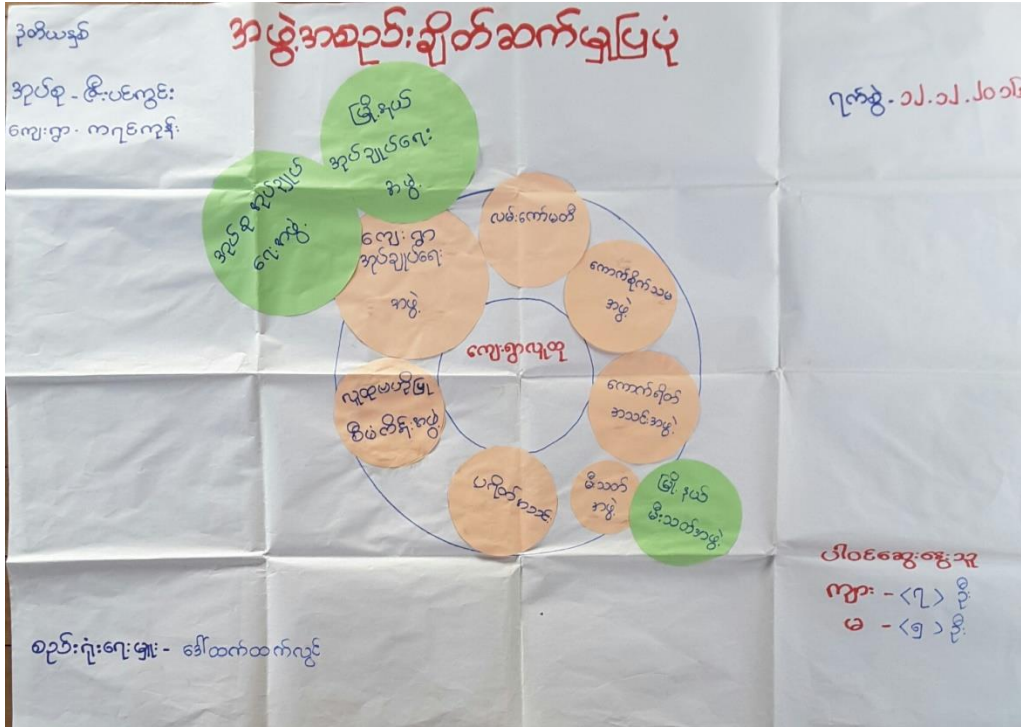 ဒုတိယနှစ်
အဖွဲ့အစည်းချိတ်ဆက်မှုပြပုံ
အုပ်စု - ဇီးပင်ကွင်း
ကျေးရွာ - ကရင်ကုန်း
ရက်စွဲ - ၁၂.၁၂.၂၀၁၆
မြို့နယ်
အုပ်ချုပ်ရေး
အဖွဲ့
အုပ်စု အုပ်ချုပ်
ရေးအဖွဲ့
ကျေးရွာ
အုပ်ချုပ်ရေး
အဖွဲ့
လမ်းကော်မတီ
ကောက်စိုက်သမ
အဖွဲ့
ကျေးရွာလူထု
ကောက်ရိတ်
အသင်းအဖွဲ့
လူထုဗဟိုပြု
စီမံကိန်းအဖွဲ့
ပရိတ်အသင်း
မီးသတ်
အဖွဲ့
မြို့နယ်
မီးသတ်အဖွဲ့
ပါဝင်ဆွေးနွေးသူ
ကျား - <၇> ဦး
မ - <၅> ဦး
စည်းရုံးရေးမှူး - ဒေါ်ထက်ထက်လွင်